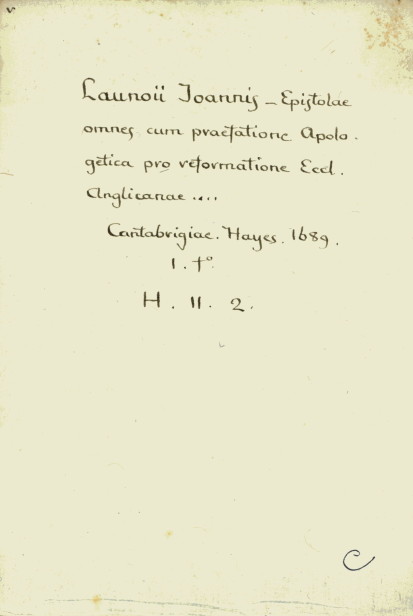 Launoii Joannis - Epistolae
omnes cum praefatione Apolo-
getica pro reformatione Eccl.
Anglicanae ....
Cantabrigiae. Hayes. 1689.
1. fº.
H. 11. 2.
C